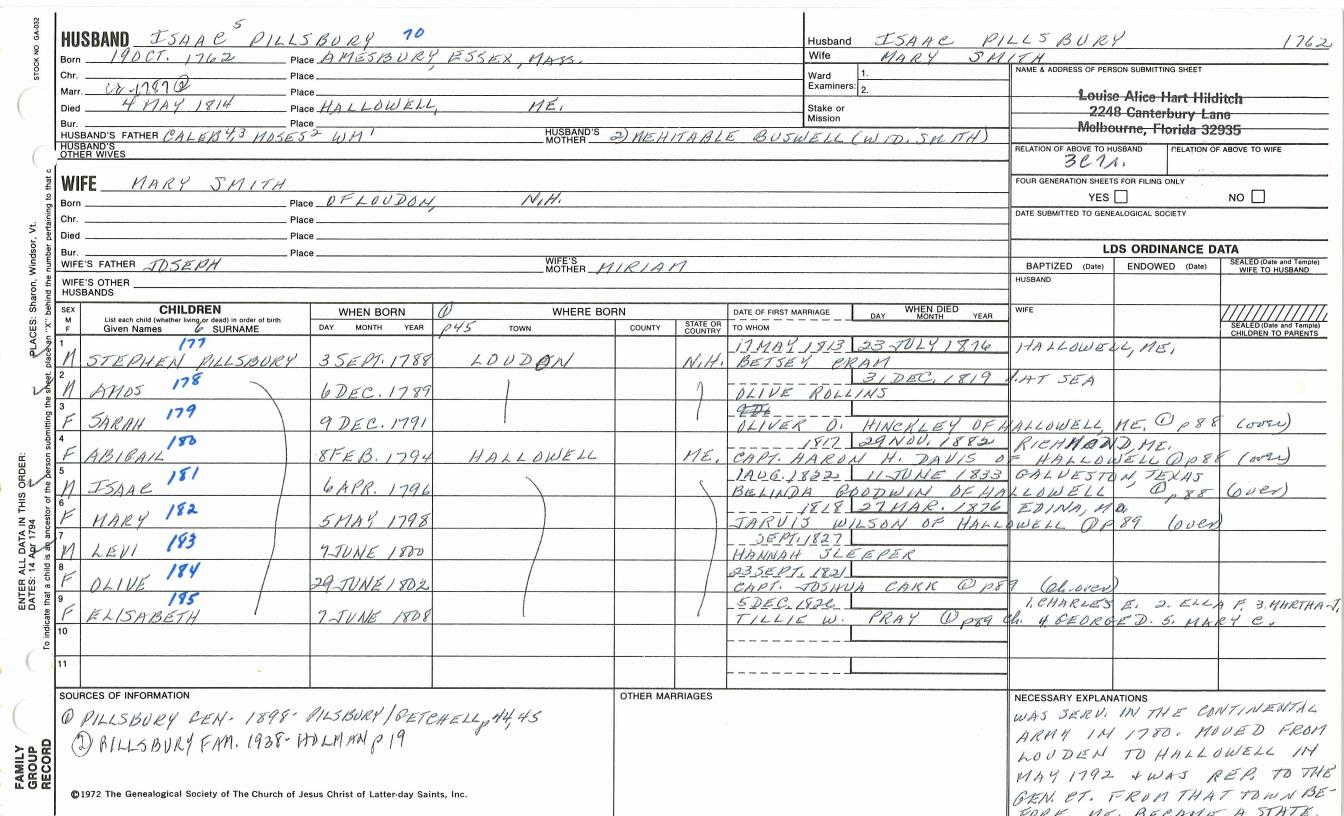 STOCK NO. GA-032
HUSBAND ISAAC 5 PILLSBURY 70
Born 19 OCT. 1762 Place AMESBURY, ESSEX, MASS.
Chr. Place
Marr. 1787 ② Place
Died 4 MAY 1814 Place HALLOWELL, ME.
Bur. Place
HUSBAND'S FATHER CALEB 4,3 MOSES 2 WM 1 HUSBAND'S MOTHER 2) MEHITABLE BUSWELL (WID. SMITH)
HUSBAND'S OTHER WIVES
Husband ISAAC PILLSBURY 1762
Wife MARY SMITH
Ward Examiners: 1.
2.
Stake or Mission
NAME & ADDRESS OF PERSON SUBMITTING SHEET
Louise Alice Hart Hilditch
2248 Canterbury Lane
Melbourne, Florida 32935
RELATION OF ABOVE TO HUSBAND RELATION OF ABOVE TO WIFE
FOUR GENERATION SHEETS FOR FILING ONLY
YES NO
DATE SUBMITTED TO GENEALOGICAL SOCIETY
WIFE MARY SMITH
Born Place OF LOUDON, N.H.
Chr. Place
Died Place
Bur. Place
WIFE'S FATHER JOSEPH WIFE'S MOTHER MIRIAM
WIFE'S OTHER HUSBANDS
LDS ORDINANCE DATA
BAPTIZED (Date) ENDOWED (Date) SEALED (Date and Temple) WIFE TO HUSBAND
HUSBAND
WIFE
SEALED (Date and Temple) CHILDREN TO PARENTS
SEX M F CHILDREN List each child (whether living or dead) in order of birth Given Names 6 SURNAME
WHEN BORN DAY MONTH YEAR
① p45 WHERE BORN TOWN COUNTY STATE OR COUNTRY
DATE OF FIRST MARRIAGE TO WHOM
WHEN DIED DAY MONTH YEAR
1 177 17 MAY 1813 23 JULY 1876 HALLOWELL, ME.
M STEPHEN PILLSBURY 3 SEPT. 1788 LOUDON N.H. BETSEY CRAM
2 178 31 DEC. 1819 AT SEA
M AMOS 6 DEC. 1789 OLIVE ROLLINS
3 179
F SARAH 9 DEC. 1791 OLIVER O. HINCKLEY OF HALLOWELL, ME. ① p88 (over)
4 180 1817 29 NOV. 1882 RICHMOND, ME.
F ABIGAIL 8 FEB. 1794 HALLOWELL ME. CAPT. AARON H. DAVIS OF HALLOWELL ① p88 (over)
5 181 1 AUG. 1822 11 JUNE 1833 GALVESTON, TEXAS
M ISAAC 6 APR. 1796 BELINDA GOODWIN OF HALLOWELL ① p88 (over)
6 182 1818 27 MAR. 1876 EDINA, MO
F MARY 5 MAY 1798 JARVIS WILSON OF HALLOWELL ① P 89 (over)
7 183 SEPT. 1827
M LEVI 7 JUNE 1800 HANNAH SLEEPER
8 184 23 SEPT. 1821
F OLIVE 29 JUNE 1802 CAPT. JOSHUA CARR ① p89 (ch. over)
9 195 5 DEC. 1826 1. CHARLES E. 2. ELLA F. 3. MARTHA J.
F ELISABETH 7 JUNE 1808 TILLIE W. PRAY ① p89 ch. 4. GEORGE D. 5. MARY C.
10
11
SOURCES OF INFORMATION
① PILLSBURY GEN. 1898 - PILSBURY/GETCHELL p 44,45
② PILLSBURY FAM. 1938 - HOLMAN p 19
©1972 The Genealogical Society of The Church of Jesus Christ of Latter-day Saints, Inc.
OTHER MARRIAGES
NECESSARY EXPLANATIONS
WAS SERV. IN THE CONTINENTAL
ARMY IN 1780. MOVED FROM
LOUDEN TO HALLOWELL IN
MAY 1792 & WAS REP. TO THE
GEN. CT. FROM THAT TOWN BE-
FORE ME. BECAME A STATE.
ENTER ALL DATA IN THIS ORDER:
DATES: 14 Apr 1794
PLACES: Sharon, Windsor, Vt.
To indicate that a child is an ancestor of the person submitting the sheet, place an "X" behind the number pertaining to that c
FAMILY
GROUP
RECORD